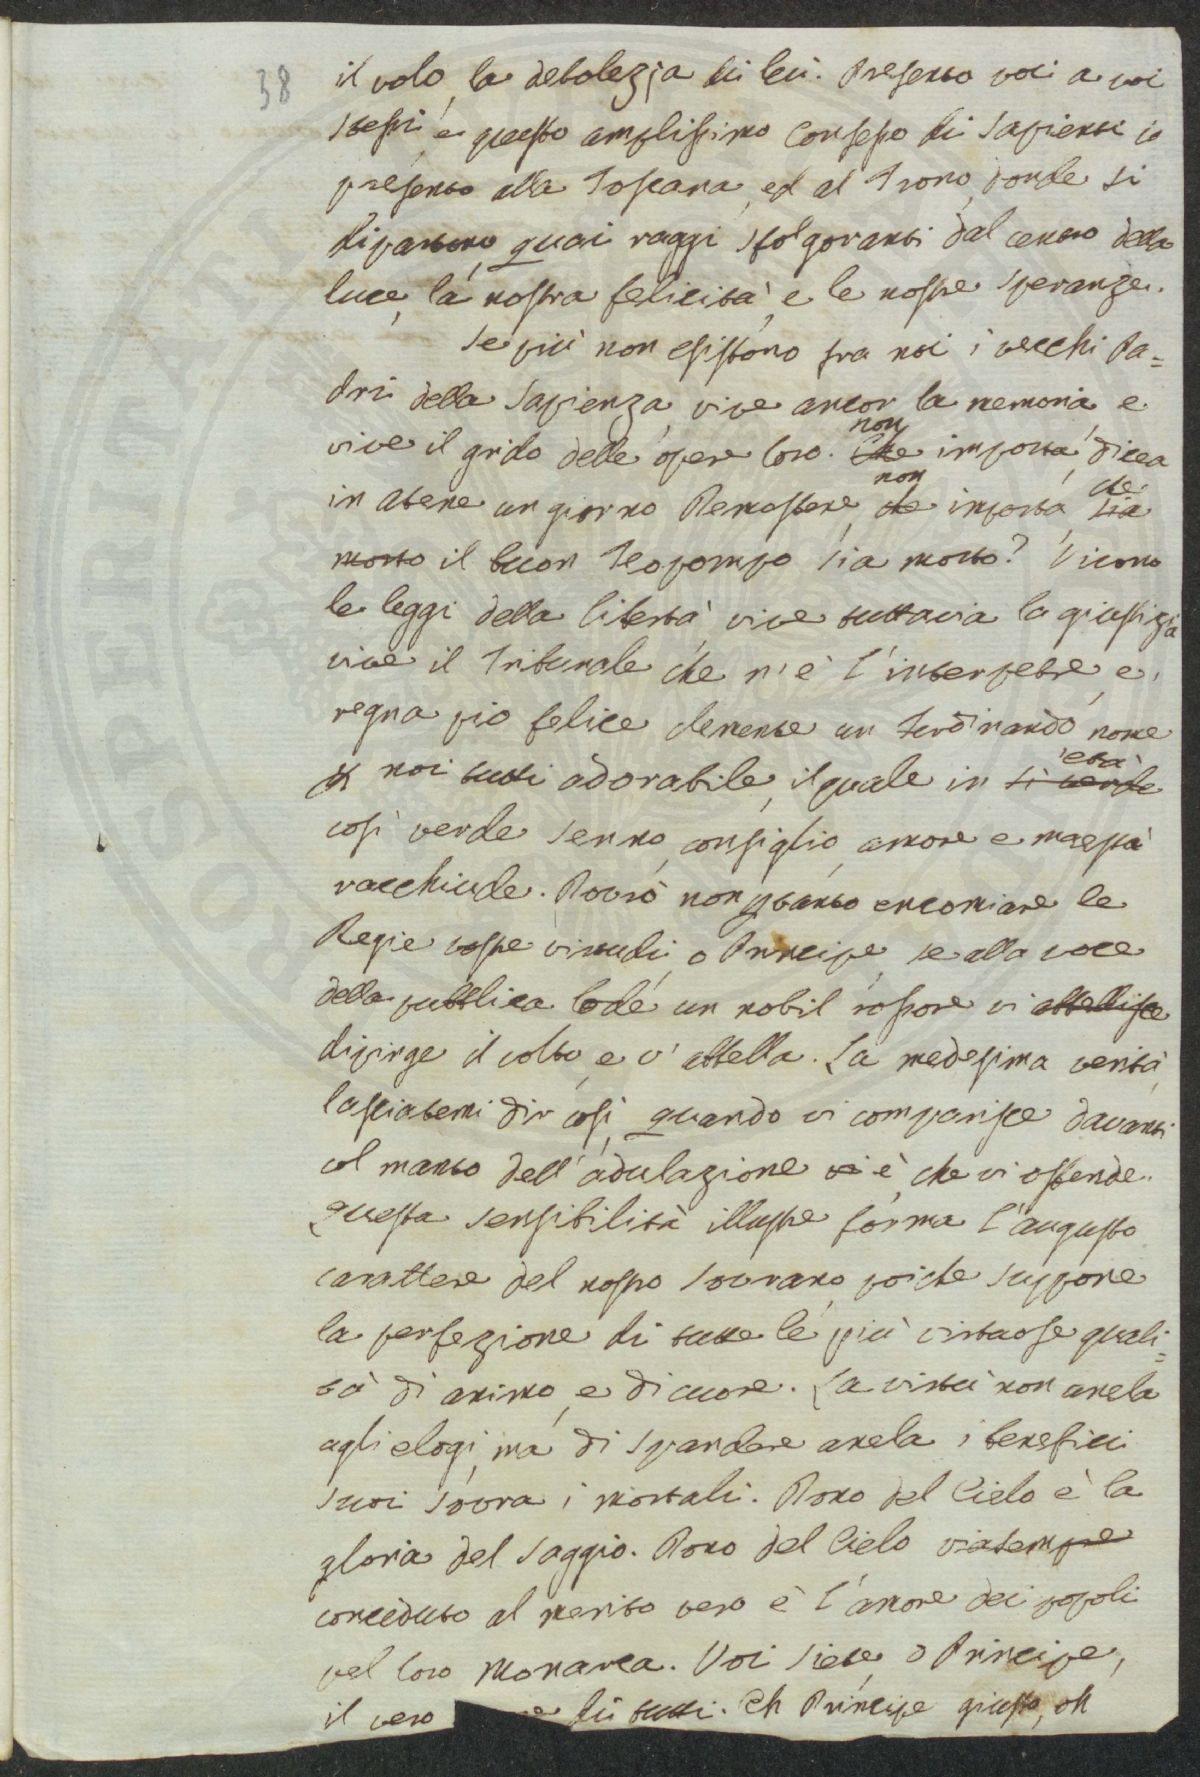 38
il volo, la debolezza di lei. Presento voi a voi
stessi, e questo amplissimo Consesso di Sapienti io
presento alla Toscana, ed al Trono, donde si
dipartono, quai raggi sfolgoranti dal centro della
luce, la nostra felicità, e le nostre speranze.
Se più non esistono fra noi i vecchi Pa=
dri della Sapienza, vive ancor la memoria, e
vive il grido delle opere loro. Che non importa, dicea
in Atene un giorno Demostene, che non importa, che sia
morto il buon Teopompo sia morto? Vivono
le leggi della libertà, vive tuttavia la giustizia
vive il Tribunale che n'è l'interpetre, e
regna pio felice clemente un Ferdinando, nome
a noi tutti adorabile, il quale in sì verde età
così verde senno, consiglio, amore e maestà
racchiude. Dovrò non pertanto encomiare le
Regie vostre virtudi, o Principe, se alla voce
della pubblica lode un nobil rossore vi abbellisce
dipinge il volto, e v'abbella. La medesima verità,
lasciatemi dir così, quando vi comparisce davanti
col manto dell'adulazione vi è, che vi offende.
Questa sensibilità illustre forma l'augusto
carattere del nostro Sovrano, poiche suppone
la perfezione di tutte le più virtuose quali=
tà di animo, e di cuore. La virtù non anela
agli elogi, ma di spandere anela i beneficii
suoi sovra i mortali. Dono del Cielo è la
gloria del Saggio. Dono del Cielo viasempre
conceduto al merito vero è l'amore dei popoli
pel loro Monarca. Voi siete, o Principe,
il vero di tutti. Oh Principe giusto, oh